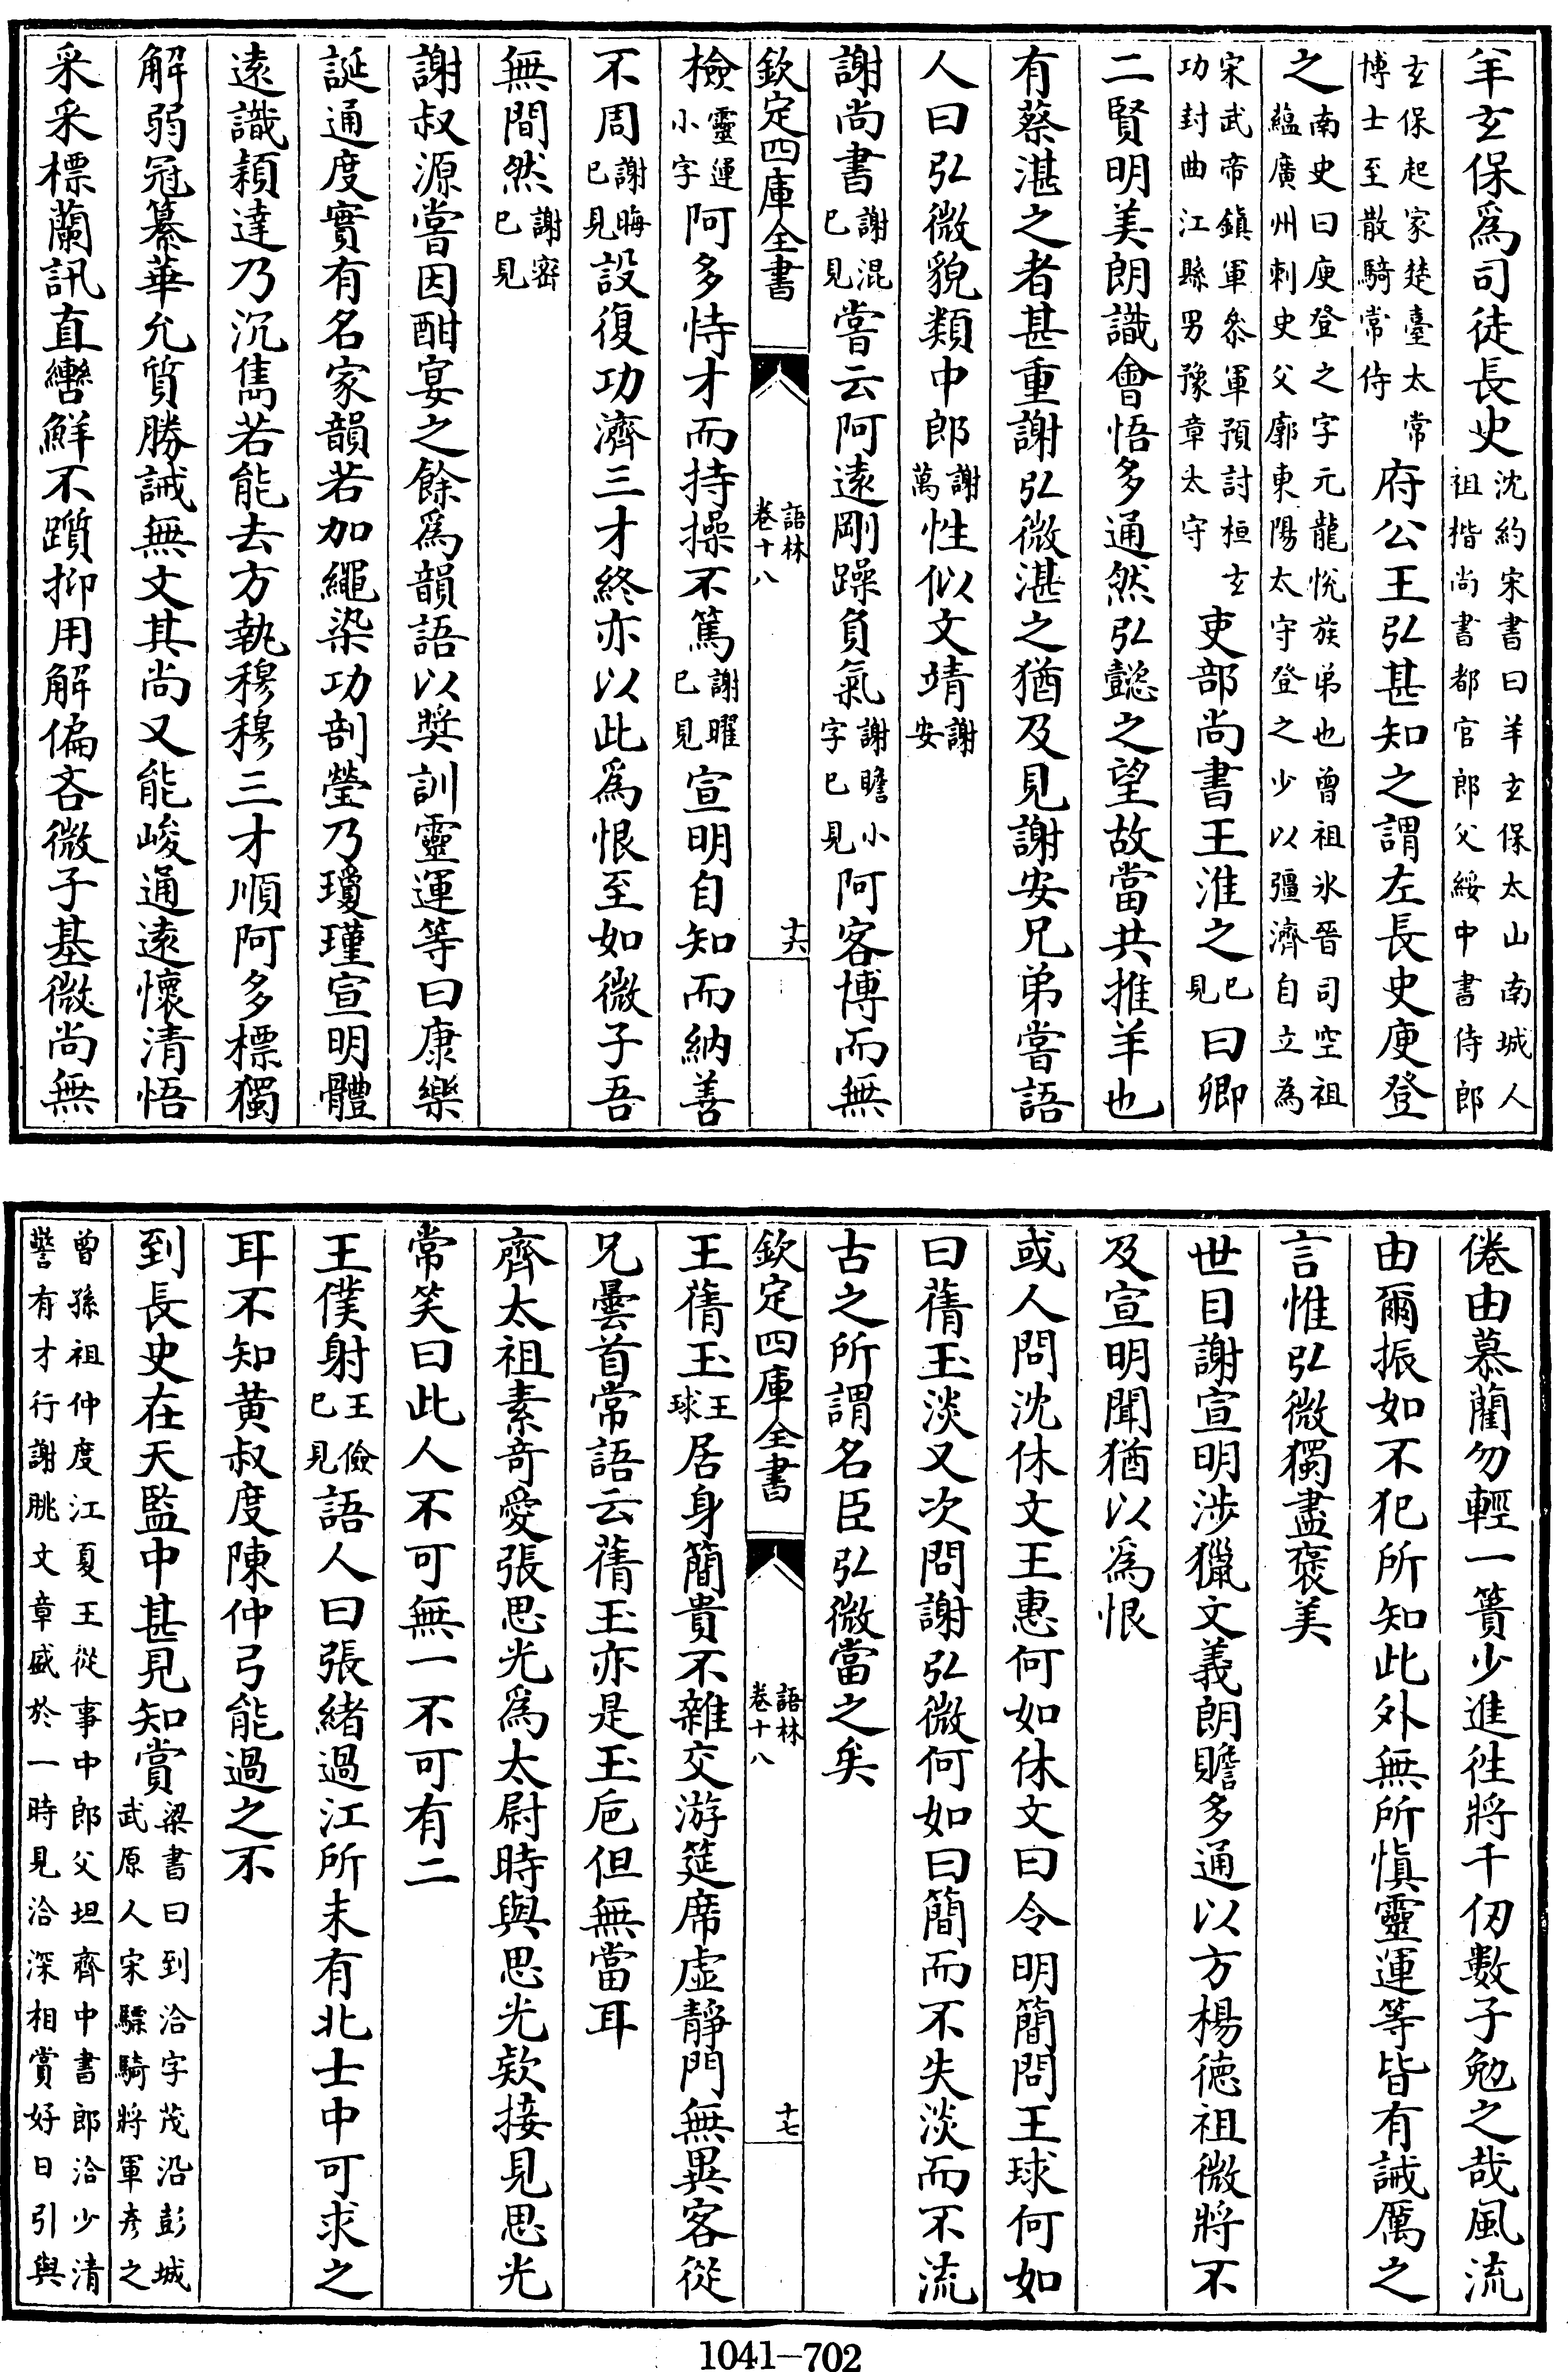 羊玄保為司徒長史沈約宋書曰羊玄保太山南城人祖楷尚書都官郎父綏中書侍郎
玄保起家楚臺太常博士至散騎常侍府公王弘甚知之謂左長史庾登
之南史曰庾登之字元龍悅族弟也曾祖氷晉司空祖蘊廣州刺史父廓東陽太守登之少以彊濟自立為
宋武帝鎮軍叅軍預討桓玄功封曲江縣男豫章太守吏部尚書王淮之已見曰卿
二賢明美朗識會悟多通然弘懿之望故當共推羊也
有蔡湛之者甚重謝弘微湛之猶及見謝安兄弟嘗語
人曰弘微貌類中郎謝萬性似文靖謝安
謝尚書謝混已見嘗云阿遠剛躁負氣謝瞻小字已見阿客博而無
欽定四庫全書 語林卷十八 十六
檢靈運小字阿多恃才而持操不篤謝曜已見宣明自知而納善
不周謝晦已見設復功濟三才終亦以此為恨至如微子吾
無間然謝密已見
謝叔源嘗因酣宴之餘為韻語以奬訓靈運等曰康樂
誕通度實有名家韻若加繩染功剖瑩乃瓊瑾宣明體
遠識穎達乃沉雋若能去方執穆穆三才順阿多標獨
解弱冠纂華允質勝誡無文其尚又能峻通遠懷清悟
采采標蘭訊直轡鮮不躓抑用解偏吝微子基微尚無
倦由慕藺勿輕一簣少進徃將千仞數子勉之哉風流
由爾振如不犯所知此外無所慎靈運等皆有誡厲之
言惟弘微獨盡褒美
世目謝宣明涉獵文義朗贍多通以方楊德祖微將不
及宣明聞猶以為恨
或人問沈休文王惠何如休文曰令明簡問王球何如
曰蒨玉淡又次問謝弘微何如曰簡而不失淡而不流
古之所謂名臣弘微當之矣
欽定四庫全書 語林卷十八 十七
王蒨玉王球居身簡貴不雜交游筵席虛靜門無異客從
兄曇首常語云蒨玉亦是玉巵但無當耳
齊太祖素奇愛張思光為太尉時與思光欵接見思光
常笑曰此人不可無一不可有二
王僕射王儉已見語人曰張緒過江所未有北士中可求之
耳不知黃叔度陳仲弓能過之不
到長史在天監中甚見知賞梁書曰到洽字茂沿彭城武原人宋驃騎將軍彥之
曾孫祖仲度江夏王從事中郎父坦齊中書郎洽少清警有才行謝朓文章盛於一時見洽深相賞好日引與
1041—702